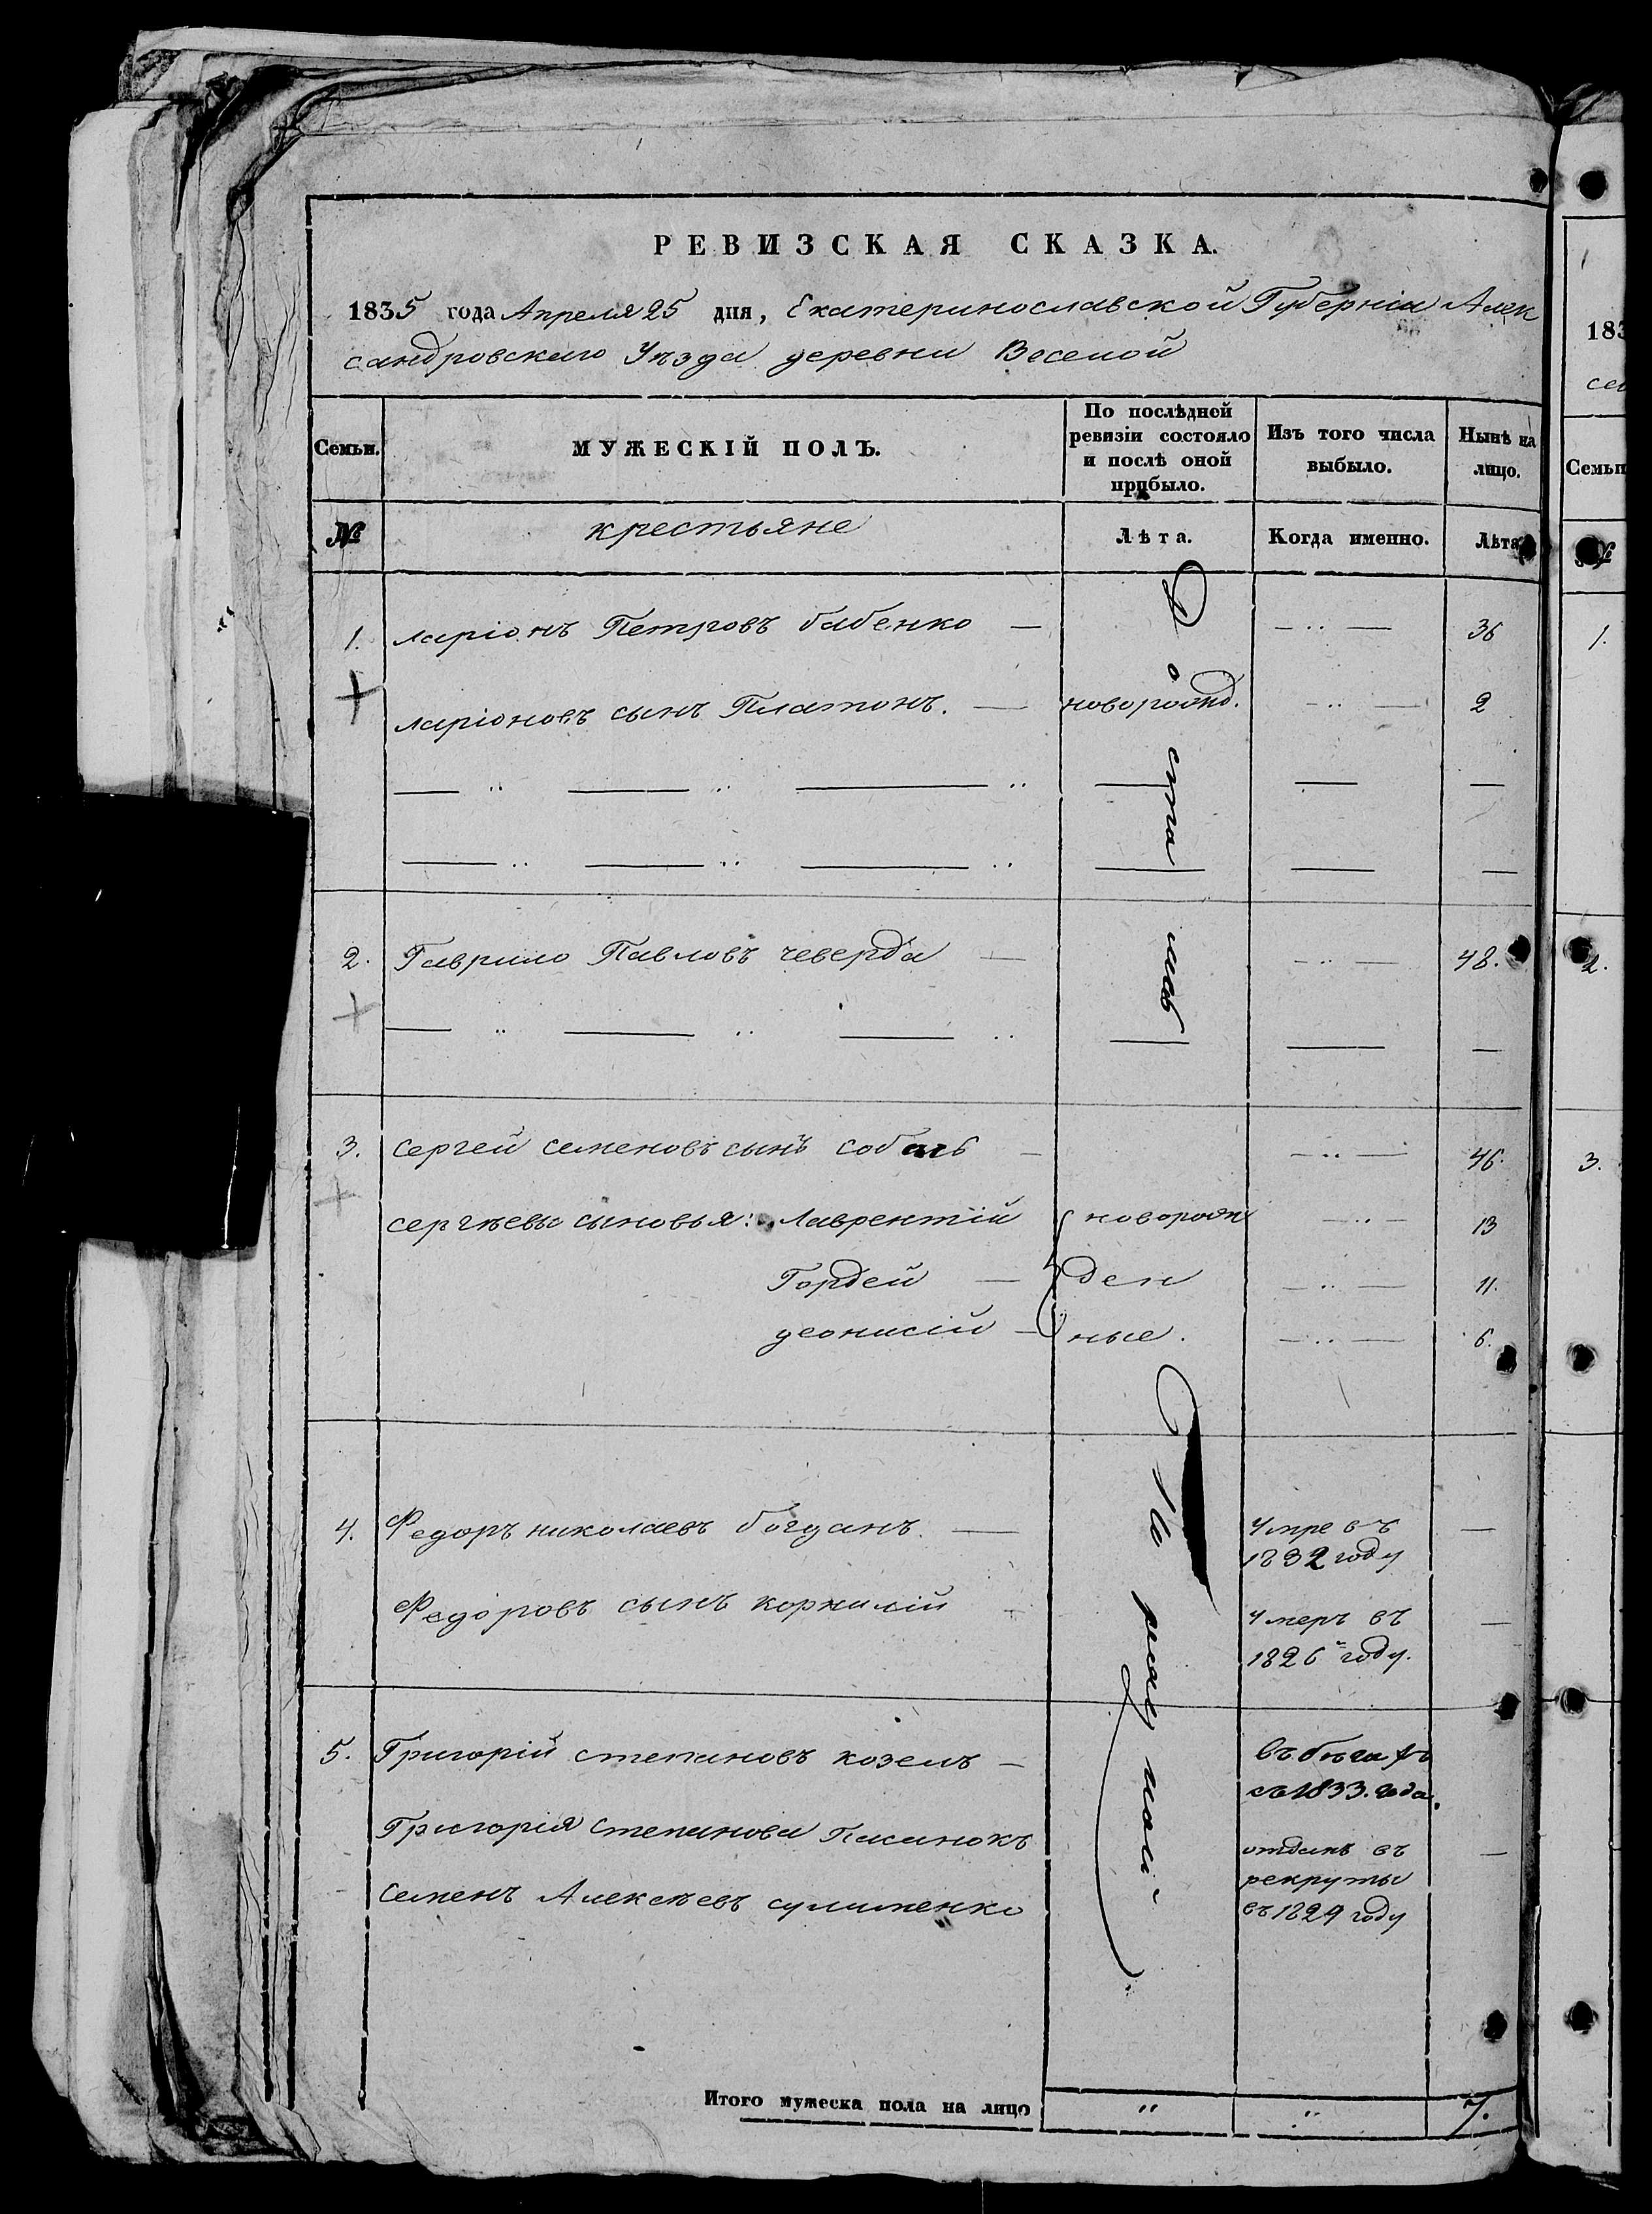 РЕВИЗСКАЯ СКАЗКА.
1835 года Апреля 25 дня, Екатеринославской Губерніи Алек
сандровскаго Уѣзда деревни Веселой
Семьи. МУЖЕСКІЙ ПОЛЪ. По послѣдней ревизіи состояло и послѣ оной прибыло. Изъ того числа выбыло. Нынѣ на лицо.
№ крестьяне Лѣта. Когда именно. Лѣта
1. ларіонъ Петровъ бабенко — — ·· — 36
ларіоновъ сынъ Платонъ. — новорожд. — ·· — 2
2. Гаврило Павловъ чеверда — — ·· — 48.
3. сергей семеновъ сынъ собаль — — ·· — 46.
сергѣевы сыновья: Лаврентій новорож — ·· — 13
Гордей — ден — ·· — 11.
деонисій — ные. — ·· — 6.
4. Федоръ николаевъ богданъ. — умре въ —
1832 году
Федоровъ сынъ корнилій — умеръ въ —
1826 году.
5. Григорій степановъ козелъ — въ бѣгахъ
съ 1833. года.
Григорія степанова Пасынокъ отданъ въ —
рекруты
семенъ Алексѣевъ сулименко въ 1829 году
Итого мужеска пола на лицо " " 7.
183
Семьи
1.
2.
3.